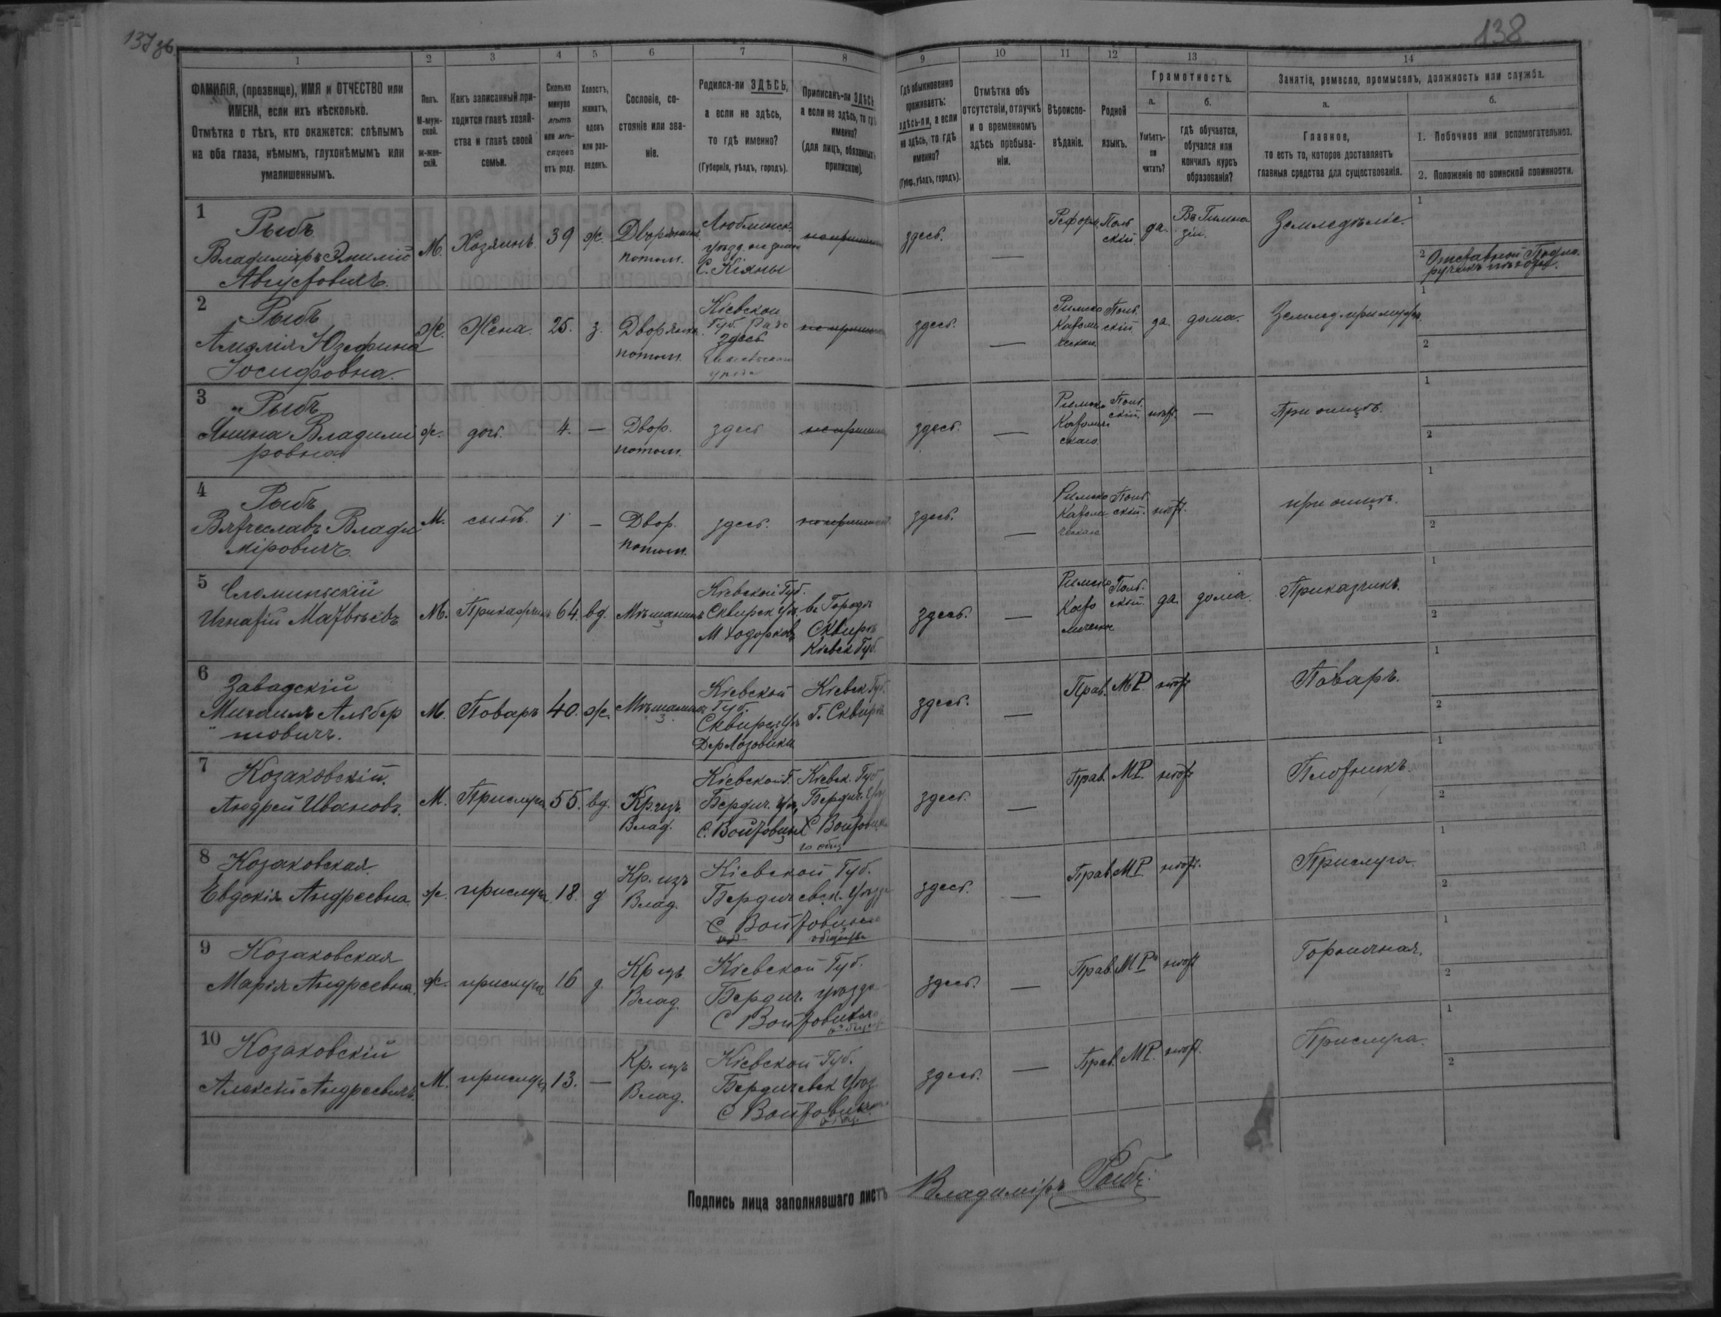 137 об
138
1 2 3 4 5 6 7 8 9 10 11 12 13 14
ФАМИЛІЯ, (прозвище), ИМЯ и ОТЧЕСТВО или
ИМЕНА, если ихъ нѣсколько.
Отмѣтка о тѣхъ, кто окажется: слѣпымъ
на оба глаза, нѣмымъ, глухонѣмымъ или
умалишеннымъ.
Полъ.
М-муж-
ской.
Ж-жен-
скій.
Какъ записанный при-
ходится главѣ хозяй-
ства и главѣ своей
семьи.
Сколько
минуло
лѣтъ
или мѣ-
сяцевъ
отъ роду.
Холостъ,
женатъ,
вдовъ
или раз-
веденъ.
Сословіе, со-
стояніе или зва-
ніе.
Родился-ли ЗДѢСЬ,
а если не здѣсь,
то гдѣ именно?
(Губернія, уѣздъ, городъ).
Приписанъ-ли ЗДѢСЬ,
а если не здѣсь, то гдѣ
именно?
(для лицъ, обязанныхъ
припискою).
Гдѣ обыкновенно
проживаетъ:
здѣсь-ли, а если
не здѣсь, то гдѣ
именно?
(Губер., уѣздъ, городъ).
Отмѣтка объ
отсутствіи, отлучкѣ
и о временномъ
здѣсь пребыва-
ніи.
Вѣроиспо-
вѣданіе.
Родной
языкъ.
Грамотность.
а.
Умѣетъ-
ли
читать?
б.
гдѣ обучается,
обучался или
кончилъ курсъ
образованія?
Занятія, ремесло, промыселъ, должность или служба.
а.
Главное,
то есть то, которое доставляетъ
главныя средства для существованія.
б.
1. Побочное или вспомогательное.
2. Положеніе по воинской повинности.
1
Рыбъ
Владиміръ Эмилій
Августовичъ
М. Хозяинъ 39 ж.
Дворянинъ
потом.
Люблинск.
С. Кіяны
здесь. —
Реформ. Поль
скій да.
Въ Гимна
зіи.
Земледѣліе
1
2 Отставной Подпо
ручикъ
2
Рыбъ
Амалія Юзефина
Іосифовна
Ж. Жена 25. з.
Дворянка
потом.
Кіевской
Губ.
здесь. —
Римско
Католи
ческая
Поль
скій да. дома.
1
2
3
Рыбъ
Янина Владими
ровна
ж. доч. 4. —
Двор.
потом.
здесь здесь. —
Римско
Католи
ческая
Поль.
скій нѣтъ —
При отцѣ.
1
2
4
Рыбъ
Вячеславъ Влади
міровичъ
М. сынъ. 1 —
Двор.
потом.
здесь. здесь. —
Римско
Католи
Поль.
скій. нѣтъ.
при отцѣ.
1
2
5
Игнатій Матвѣевъ
М. Приказчикъ 64. вд. Мѣщанинъ
Кіевской Губ.
Сквирск. Уѣз
М. Ходорковъ
въ Городѣ
Сквирѣ
Кіевск. Губ.
здесь. —
Римско
Като
лическ.
Поль.
скій. да. дома.
Приказчикъ.
1
2
6
Завадскій
Михаилъ Альбер
товичъ.
М. Поваръ 40. ж. Мѣщанинъ
Кіевской
Губ.
Дер. Лозовики
Кіевск. Губ.
Г. Сквира
здесь. —
Прав. МР. нѣтъ
Поваръ.
1
2
7
Козаковскій.
Андрей Ивановъ.
М. Прислуга 55. вд.
Кр. изъ
Влад.
Кіевской Г.
Бердич. Уѣз.
С. Войтовцы
Кіевск. Губ.
Бердич. Уѣз
С. Войтовцы
здесь. —
Прав. МР. нѣтъ
Плотникъ.
1
2
8
Козаковская
Евдокія Андреевна
ж. прислуга 18. д
Кр. изъ
Влад.
Кіевской Губ.
Бердичевск. Уѣзд
С Войтовцы
здесь. —
Прав. МР нѣтъ.
Прислуга
1
2
9
Козаковская
Марія Андреевна
ж. прислуга 16 д
Кр изъ
Влад
Кіевской Губ.
Бердич. уѣзда
С Войтовцы
здесь. —
Прав. МР. нѣтъ
Горничная.
1
2
10
Козаковскій
Алексѣй Андреевичъ
М. прислуга 13. —
Кр. изъ
Влад.
Кіевской Губ.
Бердичевск Уѣз
С Войтовцы
здесь. —
Прав. МР. нѣтъ.
Прислуга.
1
2
Подпись лица заполнявшаго листъ Владиміръ Рыбъ.